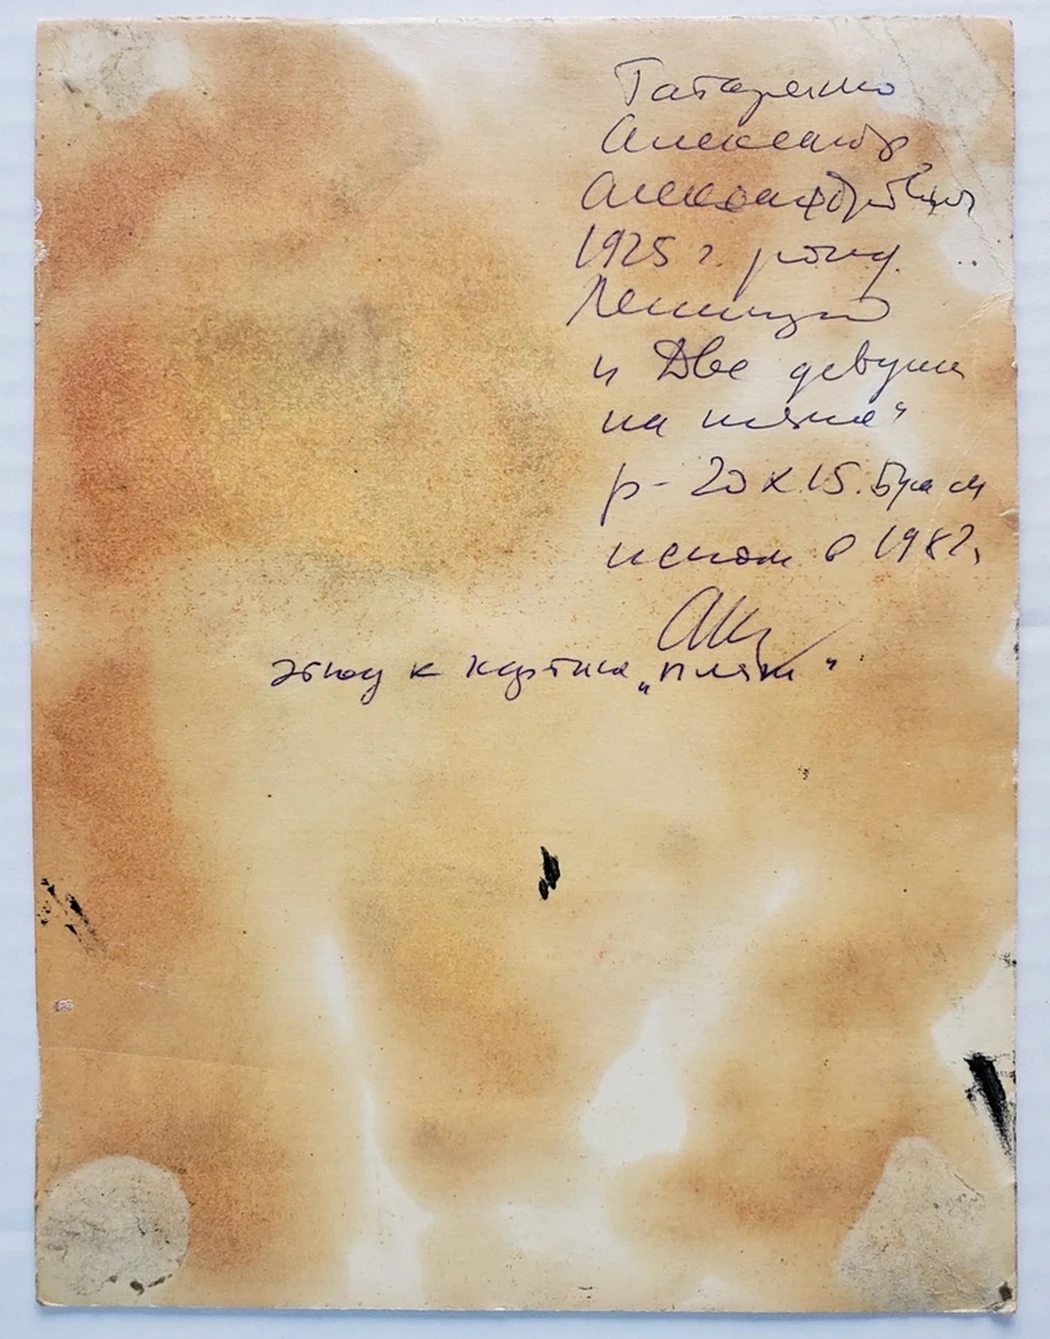 Татаренко
Александр
Александрович
1925 г. рожд
Ленинград
"Две девушки
на пляже"
р- 20 х 15. бум м
исполн в 1982.
этюд к картине "Пляж"